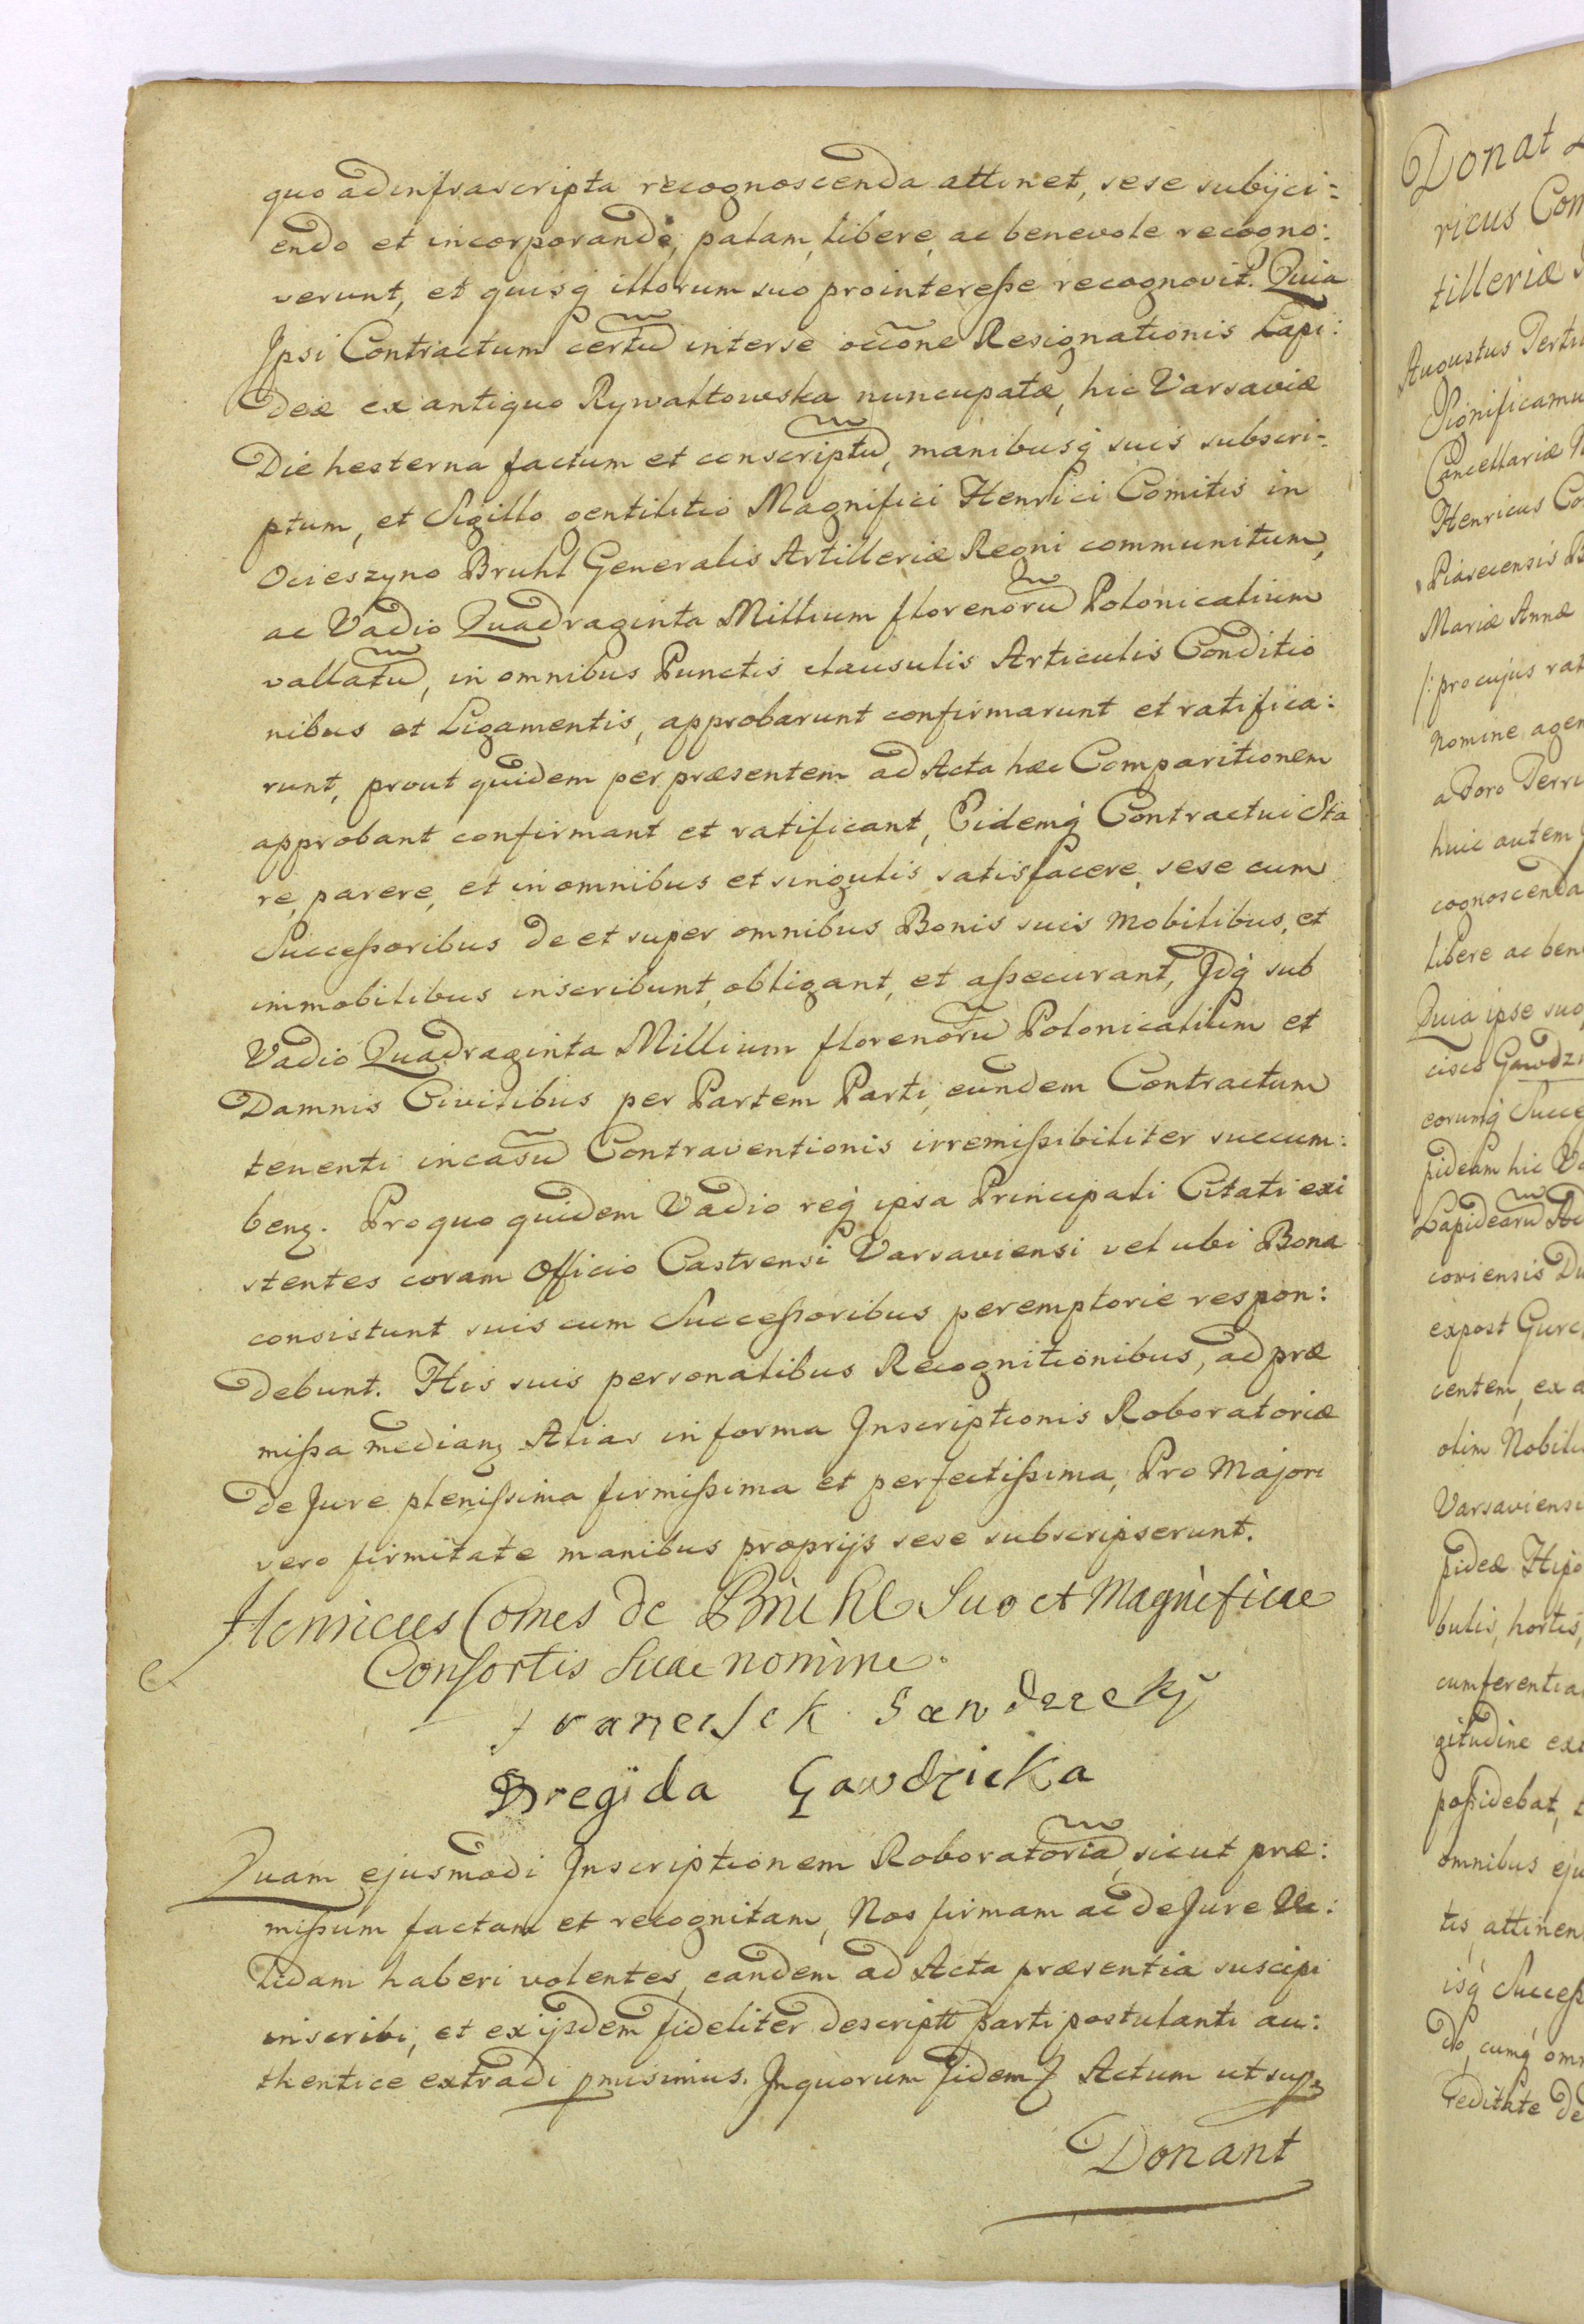 quo ad infrascripta recognoscenda attinet, sese subijci=
endo et incorporando, palam, libere, ac benevole recogno:
verunt, et quisq illorum suo prointeresse recognovit. Quia
Jpsi Contractum certũ interse occõne Resignationis Lapi:
deæ ex antiquo Rywaltowska nuncupatæ, hic Varsaviæ
Die hesterna factum et conscriptũ, manibusq suis subscri=
ptum, et Sigillo gentilitio Magnifici Henrici Comitis in
Ocieszyno Bruhl Generalis Artilleriæ Regni communitum,
ac Vadio Quadraginta Millium florenorũ Polonicalium
vallatũ, in omnibus Punctis clausulis Articulis Conditio
nibus et Ligamentis, approbarunt confirmarunt et ratifica:
runt, prout quidem per præsentem ad Acta hæc Comparitionem
approbant confirmant et ratificant, Eidemq Contractui Sta
re, parere, et in omnibus et singulis satisfacere, sese cum
Successoribus de et super omnibus Bonis suis mobilibus, et
immobilibus inscribunt, obligant, et assecurant, Jdq sub
Vadio Quadraginta Millium florenorũ Polonicalium et
Damnis Civilibus per Partem Parti, eundem Contractum
tenenti incasũ Contraventionis irremissibiliter succum:
benꝫ. Pro quo quidem Vadio req ipsa Principali Citati exi
stentes coram Officio Castrensi Varsaviensi vel ubi Bona
consistunt suis cum Successoribus peremptorie respon:
debunt. His suis personalibus Recognitionibus, ad præ
missa medianꝫ Alias in forma Jnscriptionis Roboratoriæ
de Jure plenissima firmissima et perfectissima, Pro Majori
vero firmitate manibus proprijs sese subscripserunt.
Henricus Comes de Brühl Suo et Magnificae
Consortis Suae nomine.
Bregida Gawdzicka
Quam ejusmodi Jnscriptionem Roboratoriã, sicut præ:
missum factam et recognitam, Nos firmam ac de Jure Va:
lidam haberi volentes, eandem ad Acta præsentia suscipi
inscribi, et ex ijsdem fideliter descriptt parti postulanti au:
thentice extradi pmisimus. Jnquorum fidem Actum ut sup
Donant
Donat
ricus Com
tilleriæ
Augustus Terti
Significamu
Cancellariæ
Henricus Co
Piasecensis B
Mariæ Annæ
/: pro cujus rat
nomine agen
a Foro Terri
huic autem
cognoscenda
libere ac ben
Quia ipse suo
cisco Gawdzi
eorumq Succe
pideam hic Va
Lapidearũ
coviensis Du
expost Gurc
centem, ex a
olim Nobili
Varsaviensi
pideæ Hipo
bulis, hortis,
cumferentia
gitudine exi
possidebat,
omnibus eju
tis, attinen
isq Success
do, cumq omn
reditate de